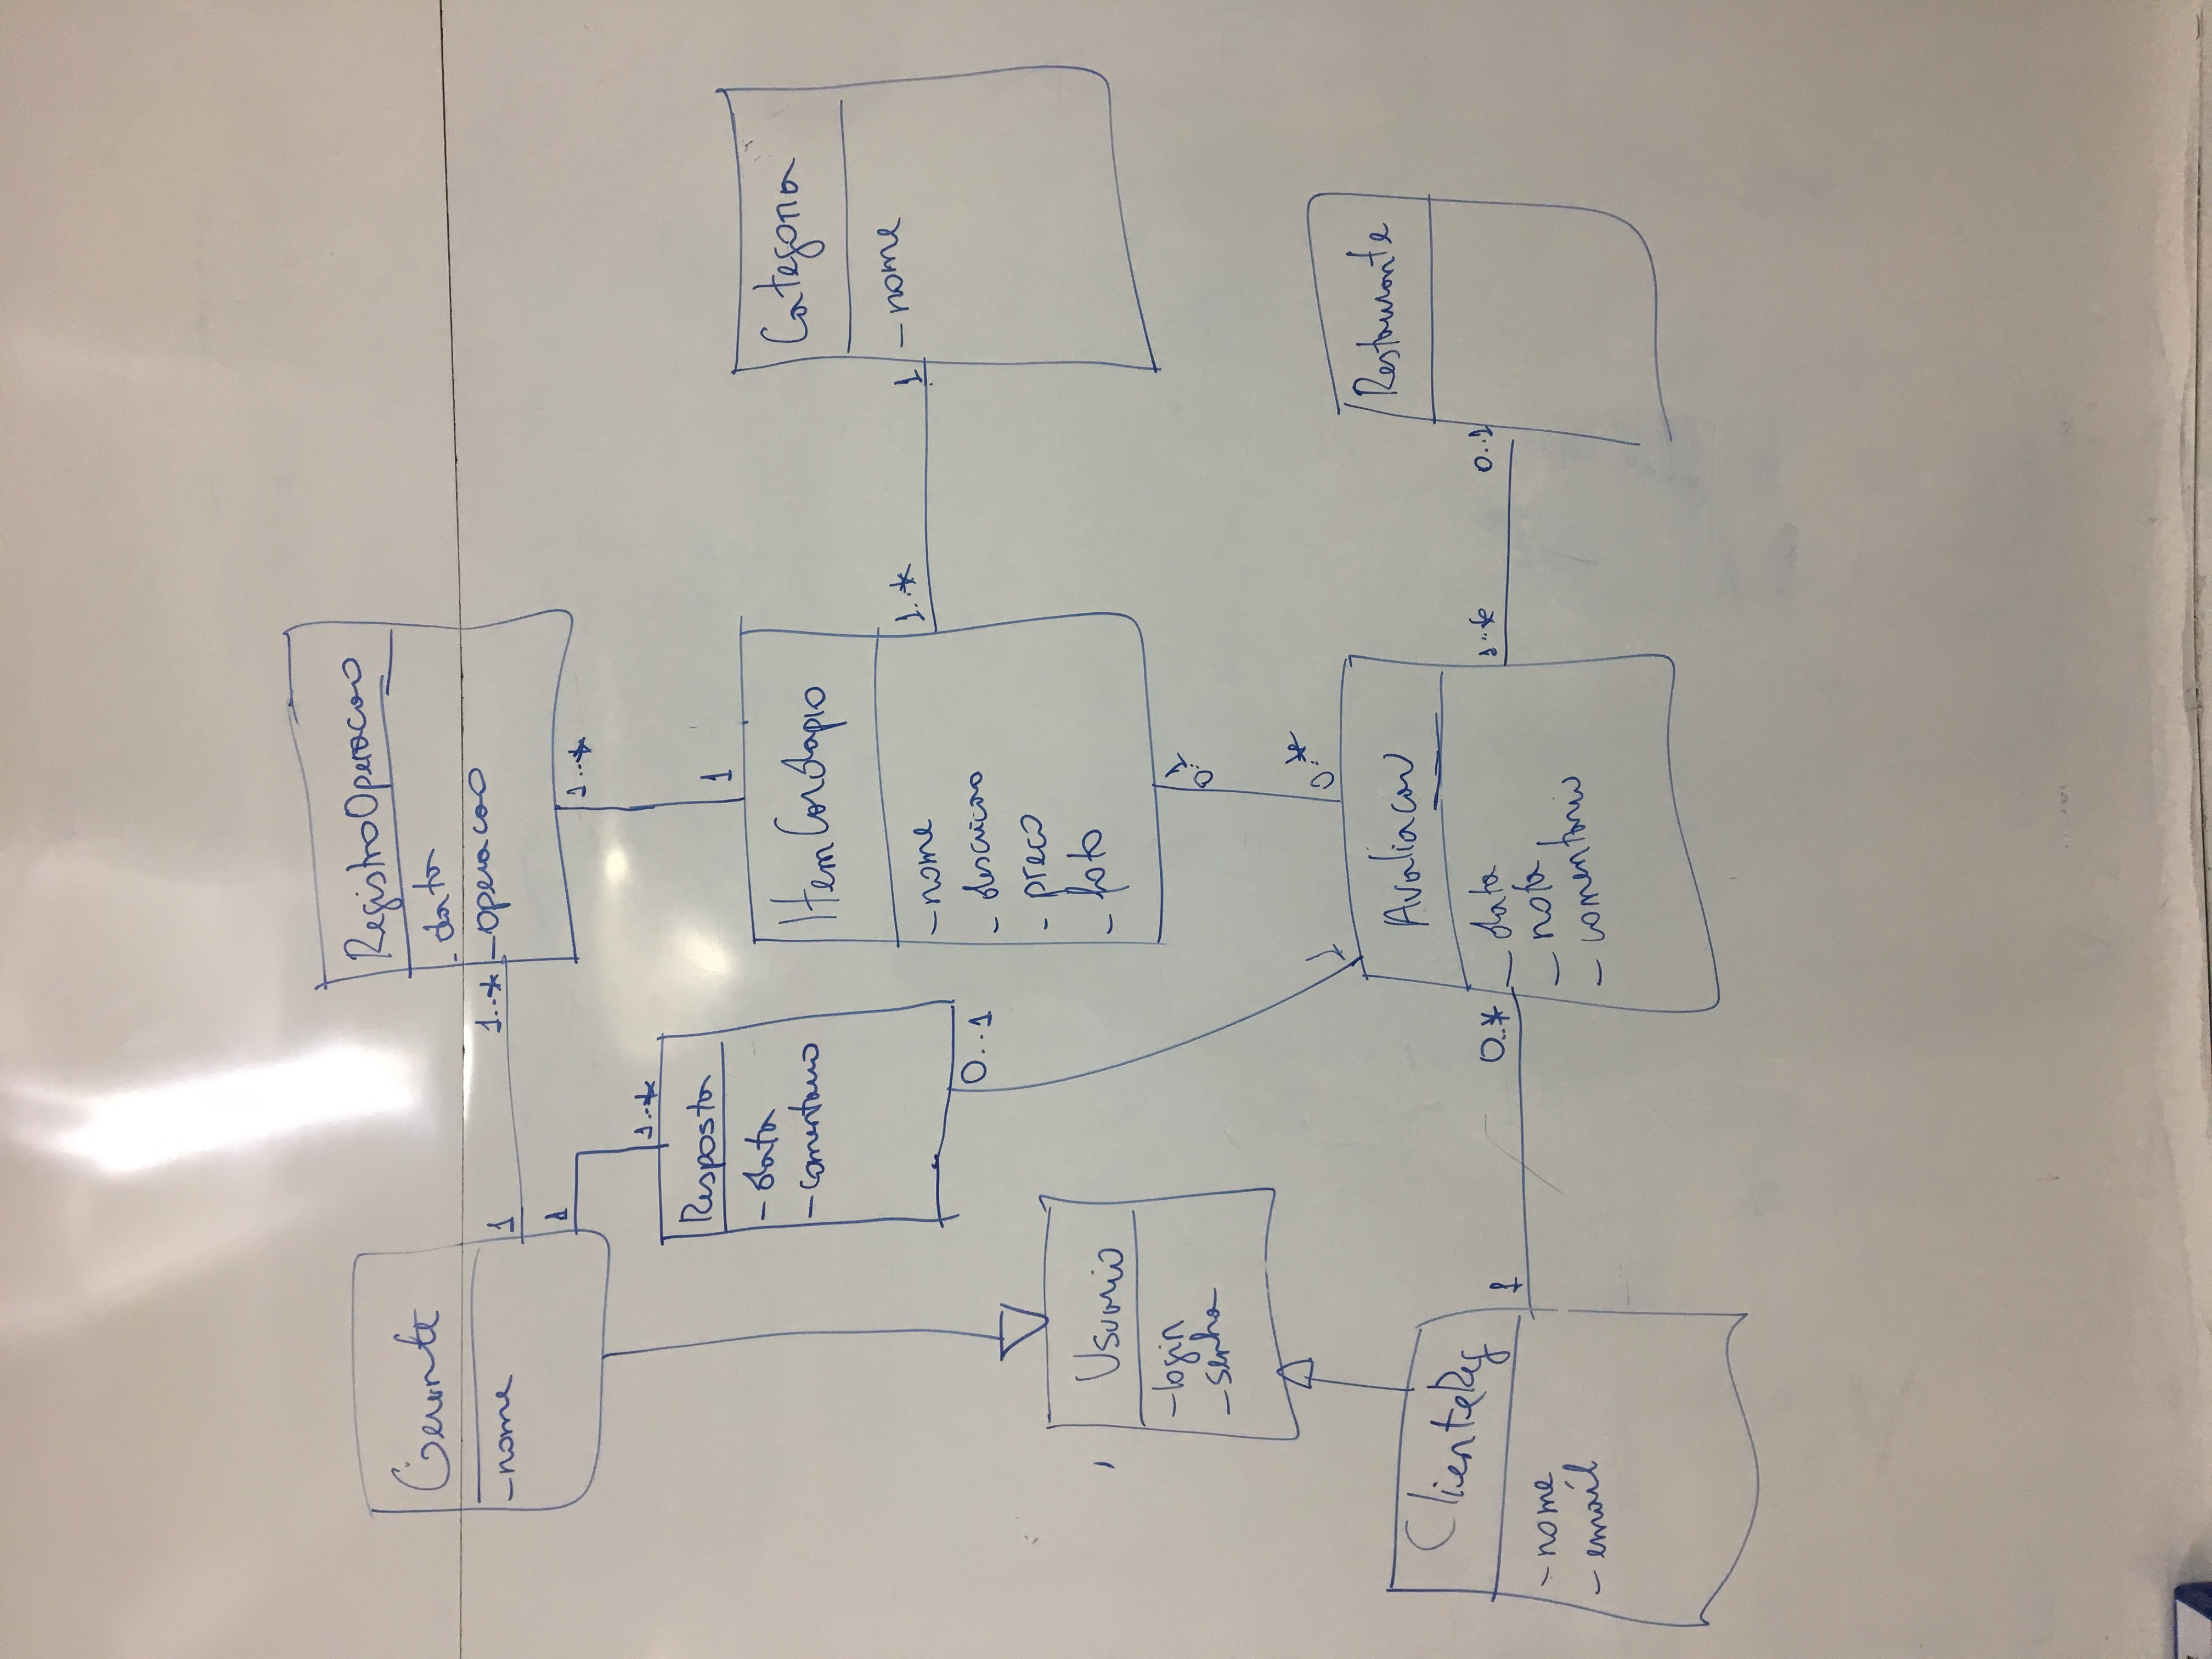 RegistroOperacao
- data
- operacao
Gerente
- nome
1
1..*
1
1..*
Resposta
- data
- comentario
0..1
1..*
1
ItemCardapio
- nome
- descricao
- preco
- foto
1..*
1
Categoria
- nome
Usuario
- login
- senha
0..1
0..*
1
ClienteReg
- nome
- email
1
0..*
Avaliacao
- data
- nota
- comentario
1..*
0..1
Restaurante